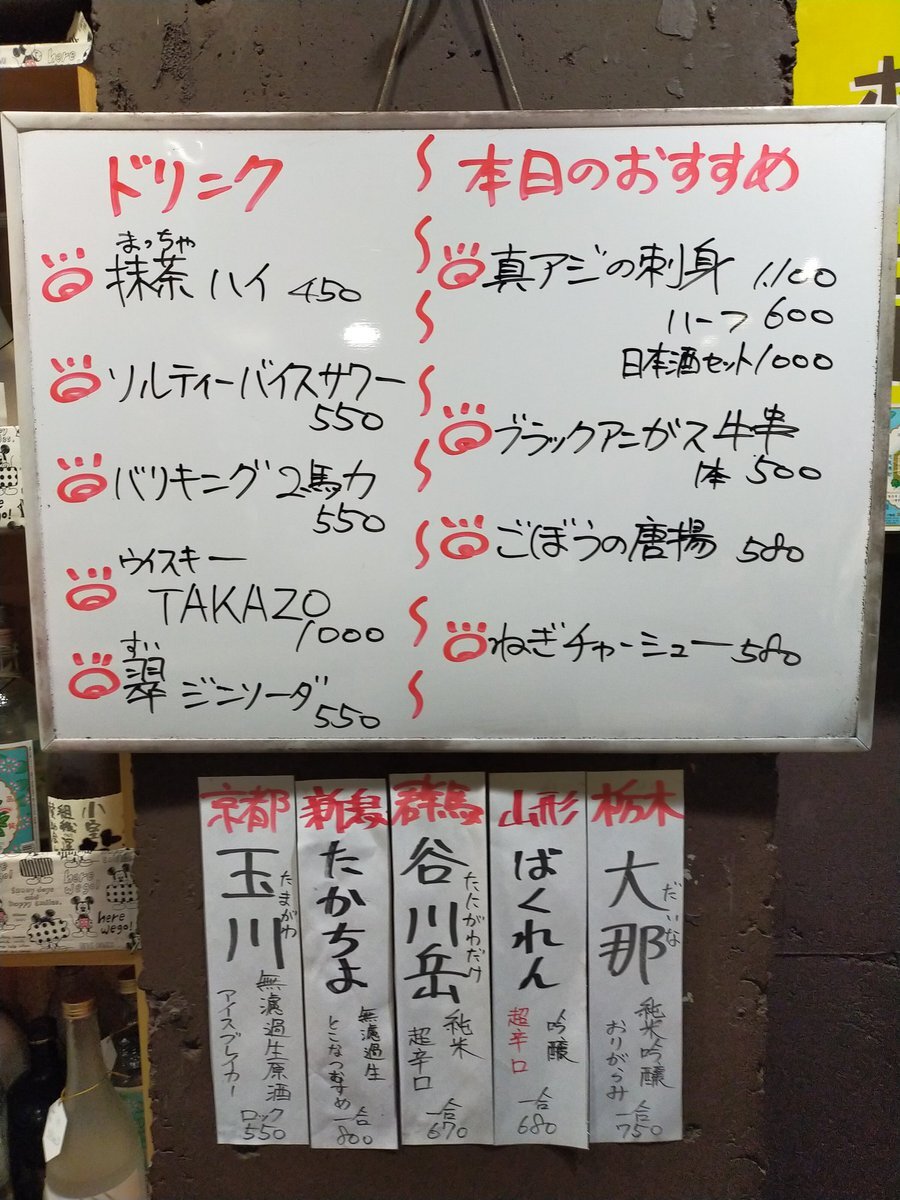 ドリンク
まっちゃ
抹茶ハイ 450
ソルティーバイスサワー
550
バリキング 2馬力
550
ウイスキー
TAKAZO
1000
すい
翠 ジンソーダ
550
本日のおすすめ
真アジの刺身 1.100
ハーフ 600
日本酒セット1000
ブラックアンガス牛串
1本 500
ごぼうの唐揚 580
ねぎチャーシュー 580
京都
玉川
たまがわ
無濾過生原酒
アイスブレイカー
ロック
550
新潟
たかちよ
無濾過生
とこなつおすすめ
一合
800
群馬
谷川岳
たにがわだけ
純米
超辛口
一合
670
山形
ばくれん
吟醸
超辛口
一合
680
栃木
大那
だいな
純米吟醸
おりがらみ
一合
750
here
here
wego!
小室